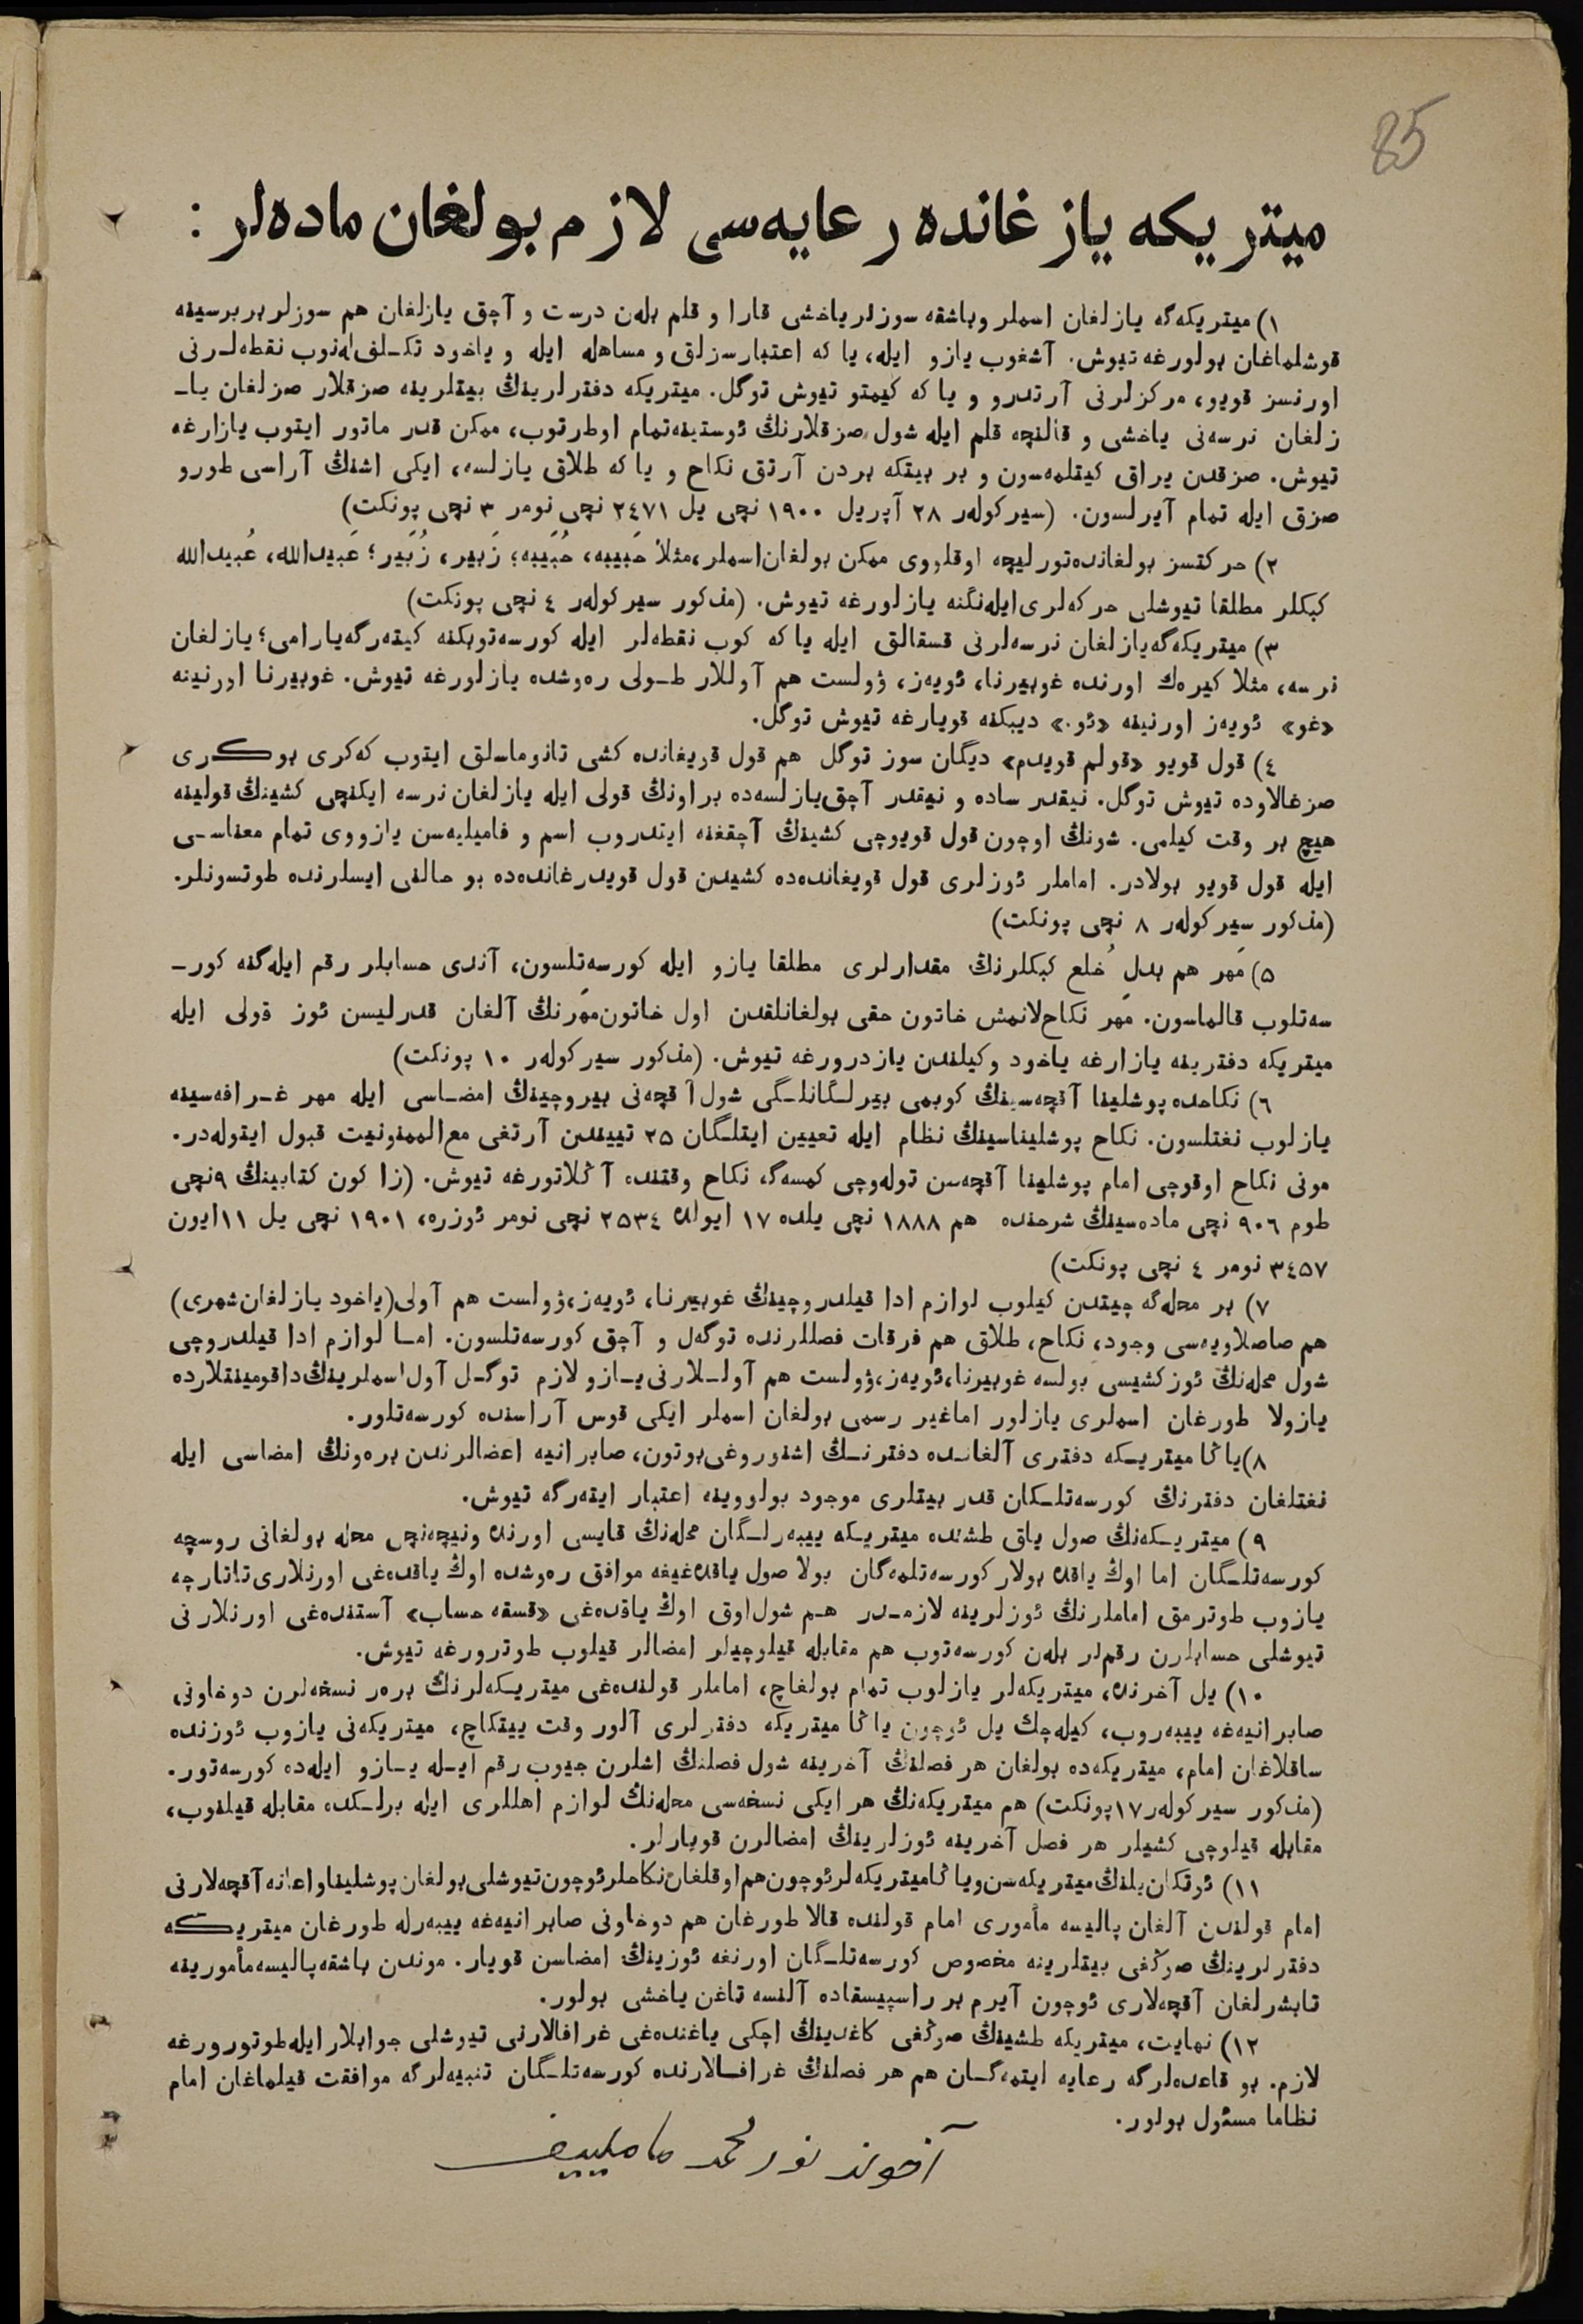 85
میتریكه یازغانده رعایه‌سی لازم بولغان ماده‌لر :
۱) میتریكه‌گه یازلغان اسملر وباشقه سوزلر یاخشی قارا و قلم بله‌ن درست و آچق یازلغان هم سوزلر بربرسینه
قوشلماغان بولورغه تیوش. آشغوب یازو ایله، یا كه اعتبارسزلق و مساهله ایله و یاخود تكـلف‌له‌نوب نقطه‌لـرنی
اورنسز قویو، مركزلرنی آرتدرو و یا كه كیمتو تیوش توگل. میتریكه دفترلرینڭ بیتلرینه صزقلار صزلغان یاـ
زلغان نرسه‌نی یاخشی و قالنچه قلم ایله شول صزقلارنڭ ئوستینه‌تمام اوطرتوب، ممكن قدر ماتور ایتوب یازارغه
تیوش. صزقدن یراق كیتلمه‌سون و بر بیتكه بردن آرتق نكاح و یا كه طلاق یازلسه، ایكی اشنڭ آراسی طورو
صزق ایله تمام آیرلسون. (سیركوله‌ر ۲۸ آپریل ۱۹۰۰ نچی یل ۲٤۷۱ نچی نومر ۳ نچی پونكت)
۲) حركتسز بولغانده‌تورلیچه اوقلووی ممكن بولغان‌اسملر،مثلا حَبیبه، حُبَیبه؛ زَبیر، زُبَیر؛ عَبیدالله، عُبیدالله
كبكلر مطلقا تیوشلی حركه‌لری‌ایله‌نگنه یازلورغه تیوش. (مذكور سیركوله‌ر ٤ نچی پونكت)
۳) میتریكه‌گه‌یازلغان نرسه‌لرنی قسقالق ایله یا كه كوب نقطه‌لر ایله كورسه‌توبكنه كیته‌رگه‌یارامی؛ یازلغان
نرسه، مثلا كیره‌ك اورنده غوبیرنا، ئویه‌ز، ۋولست هم آوللار طـولی ره‌وشده یازلورغه تیوش. غوبیرنا اورنینه
«غو» ئویه‌ز اورنینه «ئو.» دیبكنه قویارغه تیوش توگل.
٤) قول قویو «قولم قویدم» دیگان سوز توگل هم قول قویغانده كشی تانوماسلق ایتوب كه‌كری بوكـری
صزغالاوده تیوش توگل. نیقدر ساده و نیقدر آچق‌یازلسه‌ده براونڭ قولی ایله یازلغان نرسه ایكنچی كشینڭ قولینه
هیچ بر وقت كیلمی. شونڭ اوچون قول قویوچی كشینڭ آچقغنه ایتدروب اسم و فامیلیه‌سن یازووی تمام معناسـی
ایله قول قویو بولادر. اماملر ئوزلری قول قویغانده‌ده كشیدن قول قویدرغانده‌ده بو حالنی ایسلرنده طوتسونلر.
(مذكور سیركوله‌ر ۸ نچی پونكت)
۵) مَهر هم بدل خُلع كبكلرنڭ مقدارلری مطلقا یازو ایله كورسه‌تلسون، آندی حسابلر رقم ایله‌گنه كورـ
سه‌تلوب قالماسون. مَهر نكاح‌لانمش خاتون حقی بولغانلقدن اول خاتون‌مَهرنڭ آلغان قدرلیسن ئوز قولی ایله
میتریكه دفترینه یازارغه یاخود وكیلندن یازدرورغه تیوش. (مذكور سیركوله‌ر ۱۰ پونكت)
٦) نكاحده پوشلینا آقچه‌سینڭ كوبمی بیرلـگانلـگی شول آقچه‌نی بیروچینڭ امضـاسی ایله مهر غـرافه‌سینه
یازلوب نغتلسون. نكاح پوشلیناسینڭ نظام ایله تعیین ایتلـگان ۲۵ تییندن آرتغی مع‌الممنونیت قبول ایتوله‌در.
مونی نكاح اوقوچی امام پوشلینا آقچه‌سن توله‌وچی كمسه‌گه نكاح وقتنده آڭلاتورغه تیوش. (زاكون كتابینڭ ۹نچی
طوم ۹۰٦ نچی ماده‌سینڭ شرحنده هم ۱۸۸۸ نچی یلده ۱۷ ایولده ۲۵۳٤ نچی نومر ئوزره، ۱۹۰۱ نچی یل ۱۱ایون
۳٤۵۷ نومر ٤ نچی پونكت)
۷) بر محله‌گه چیتدن كیلوب لوازم ادا قیلدروچینڭ غوبیرنا، ئویه‌ز،ۋولست هم آولی(یاخود یازلغان‌شهری)
هم صاصلاویه‌سی وجود، نكاح، طلاق هم فرقات فصللرنده توگه‌ل و آچق كورسه‌تلسون. امـا لوازم ادا قیلدروچی
شول محله‌نڭ ئوزكشیسی بولسه غوبیرنا،ئویه‌ز،ۋولست هم آولـلارنی‌یـازو لازم توگـل آول‌اسملرینڭ‌داقومینتلارده
یازولا طورغان اسملری یازلور اماغیر رسمی بولغان اسملر ایكی قوس آراسنده كورسه‌تلور.
۸)یاڭا میتریـكه دفتری آلغانـده دفترنـڭ اشنوروغی‌بوتون، صابرانیه اعضالرندن بره‌ونڭ امضاسی ایله
نغتلغان دفترنڭ كورسه‌تلـگان قدر بیتلری موجود بولووینه اعتبار ایته‌رگه تیوش.
۹) میتریـكه‌نڭ صول یاق طشنده میتریـكه ییبه‌رلـگان محله‌نڭ قایسی اورنده ونیچه‌نچی محله بولغانی روسچه
كورسه‌تلـگان اما اوڭ یاقده بولار كورسه‌تلمه‌گان بولا صول یاقده‌غیغه موافق ره‌وشده اوڭ یاقده‌غی اورنلاری‌تاتارچه
یازوب طوترمق اماملرنڭ ئوزلرینه لازمـدر هـم شول‌اوق اوڭ یاقده‌غی «قسقه حساب» آستنده‌غی اورنلارنی
تیوشلی حسابلرن رقم‌لر بله‌ن كورسه‌توب هم مقابله قیلوچیلر امضالر قیلوب طوترورغه تیوش.
۱۰) یل آخرنده، میتریكه‌لر یازلوب تمام بولغاچ، اماملر قولنده‌غی میتریـكه‌لرنڭ بره‌ر نسخه‌لرن دوخاونی
صابرانیه‌غه ییبه‌روب، كیله‌چك یل ئوچون یاڭا میتریكه دفترلری آلور وقت ییتكاچ، میتریكه‌نی یازوب ئوزنده
ساقلاغان امام، میتریكه‌ده بولغان هر فصلنڭ آخرینه شول فصلنڭ اشلرن جیوب رقم ایـله یـازو ایله‌ده كورسه‌تور.
(مذكور سیركوله‌ر ۱۷پونكت) هم میتریكه‌نڭ هر ایكی نسخه‌سی محله‌نڭ لوازم اهللری ایله برلـكده مقابله قیلنوب،
مقابله قیلوچی كشیلر هر فصل آخرینه ئوزلرینڭ امضالرن قویارلر.
۱۱) ئوتكان‌یلنڭ‌میتریكه‌سن‌ویاڭامیتریكه‌لرئوچون‌هم‌اوقلغان‌نكاحلرئوچون‌تیوشلی‌بولغان‌پوشلیناواعانه‌آقچه‌لارنی
امام قولندن آلغان پالیسه مأموری امام قولنده قالا طورغان هم دوخاونی صابرانیه‌غه ییبه‌رله طورغان میتریـكه
دفترلرینڭ صوڭغی بیتلرینه مخصوص كورسه‌تلـگان اورنغه ئوزینڭ امضاسن قویار. موندن باشقه‌پالیسه‌مأمورینه
تابشرلغان آقچه‌لاری ئوچون آیرم بر راسپیسقاده آلنسه تاغن یاخشی بولور.
۱۲) نهایت، میتریكه طشینڭ صوڭغی كاغدینڭ اچكی یاغنده‌غی غرافالارنی تیوشلی جوابلار ایله‌طوتورورغه
لازم. بو قاعده‌لرگه رعایه ایتمه‌گـان هم هر فصلنڭ غرافـالارنده كورسه‌تلـگان تنبیه‌لرگه موافقت قیلماغان امام
نظاما مسئول بولور.
آخوند نورمحمد ماملییف